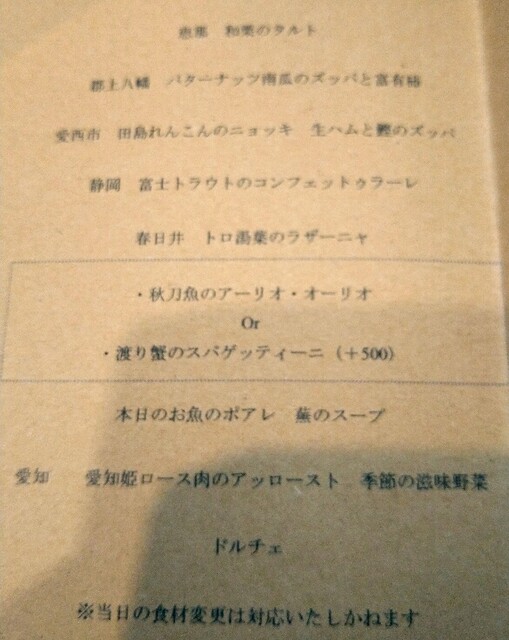 恵那　和栗のタルト
郡上八幡　バターナッツ南瓜のズッパと富有柿
愛西市　田島れんこんのニョッキ　生ハムと鰹のズッパ
静岡　富士トラウトのコンフェットゥラーレ
春日井　トロ湯葉のラザーニャ
・秋刀魚のアーリオ・オーリオ
Or
・渡り蟹のスパゲッティーニ（＋500）
本日のお魚のポアレ　蕪のスープ
愛知　愛知姫ロース肉のアッロースト　季節の滋味野菜
ドルチェ
※当日の食材変更は対応いたしかねます